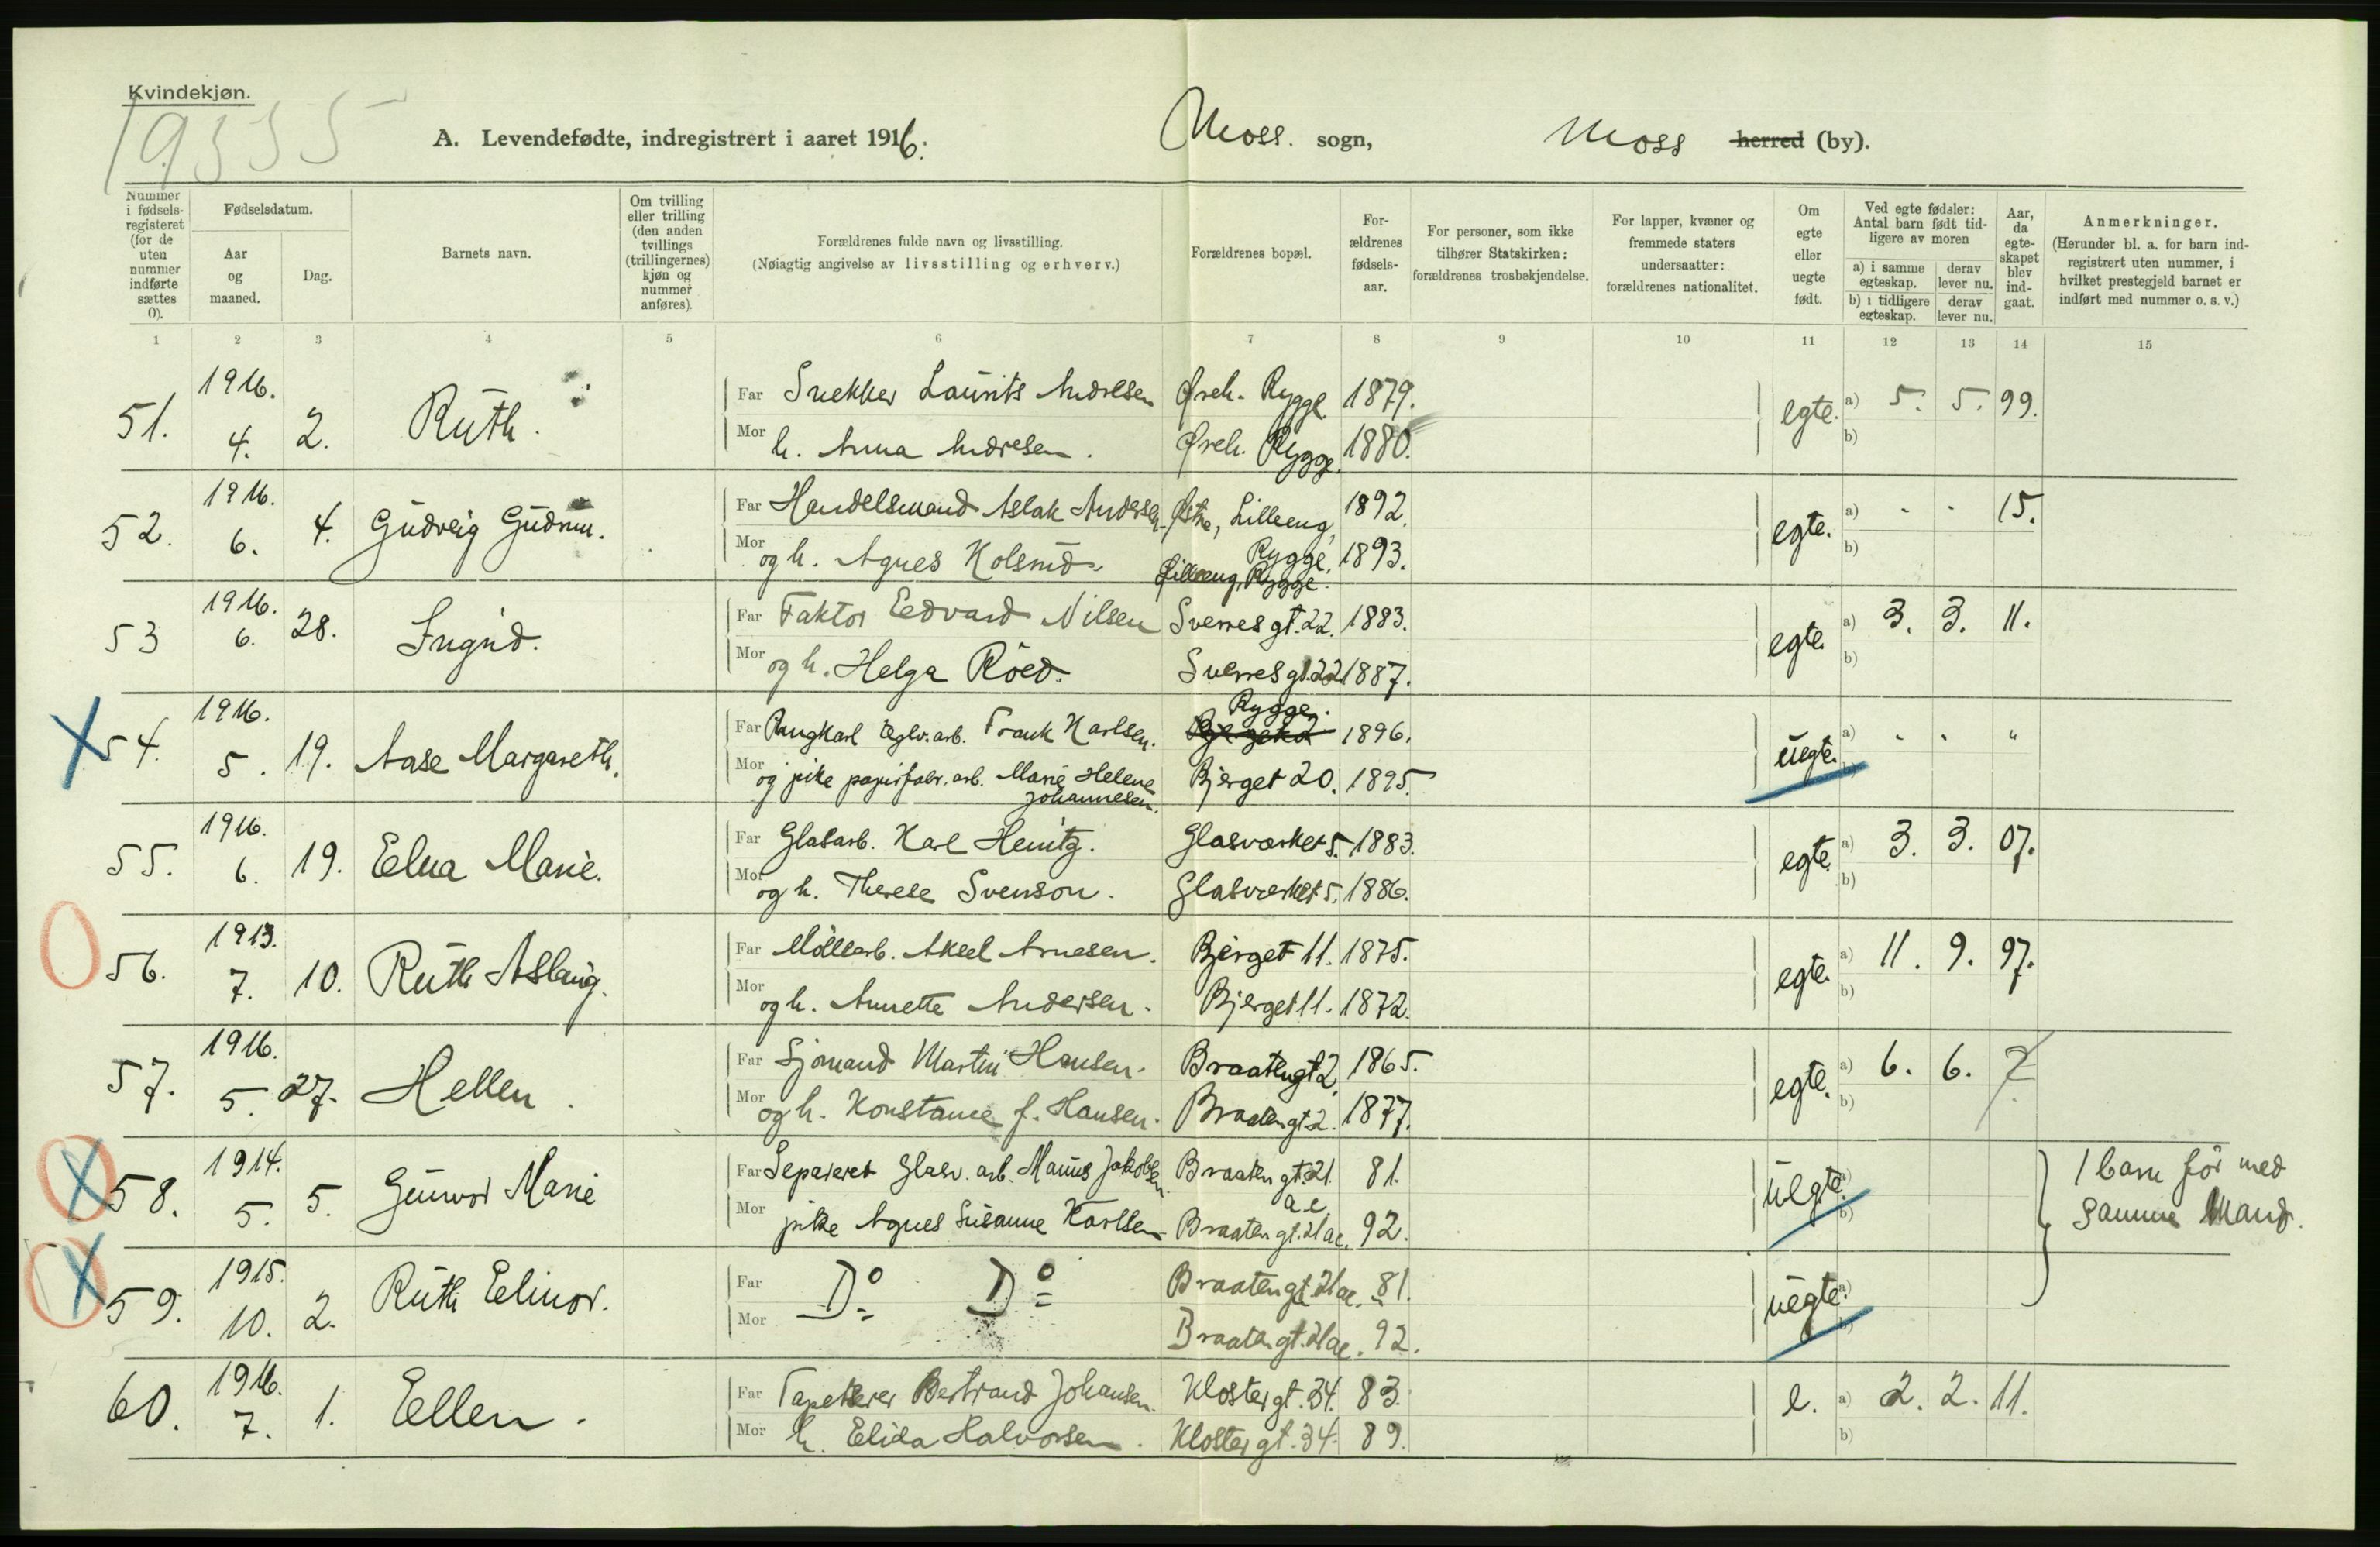 Kvindekjøn.
19335
A. Levendefødte, indregistrert i aaret 1916. Moss. sogn, Moss herred (by).
Nummer i fødselsregisteret (for de uten nummer indførte sættes 0).
Fødselsdatum.
Aar og maaned.
Dag.
Barnets navn.
Om tvilling eller trilling (den anden tvillings (trillingernes) kjøn og nummer anføres).
Forældrenes fulde navn og livsstilling.
(Nøiagtig angivelse av livsstilling og erhverv.)
Forældrenes bopæl.
Forældrenes fødselsaar.
For personer, som ikke tilhører Statskirken: forældrenes trosbekjendelse.
For lapper, kvæner og fremmede staters undersaatter: forældrenes nationalitet.
Om egte eller uegte født.
Ved egte fødsler: Antal barn født tidligere av moren
a) i samme egteskap. derav lever nu.
b) i tidligere egteskap. derav lever nu.
Aar, da egteskapet blev indgaat.
Anmerkninger.
(Herunder bl. a. for barn indregistrert uten nummer, i hvilket prestegjeld barnet er indført med nummer o. s. v.)
1 2 3 4 5 6 7 8 9 10 11 12 13 14 15
51. 1916. 4. 2. Ruth.
Far Snekker Laurits Andresen Øreh. Rygge. 1879. egte. a) 5. 5. 99.
Mor h. Anna Andresen. Øreh. Rygge. 1880. b)
52. 1916. 6. 4. Gudveig Gudrun.
Far Handelsmand Aslak Andersen. Østre, Lilleeng, Rygge. 1892. egte. a) - - 15.
Mor og h. Agnes Kolsrud. Lilleeng, Rygge. 1893. b)
53 1916. 6. 28. Ingrid.
Far Faktor Edvard Nilsen Sverres gt. 22. 1883. egte. a) 3. 3. 11.
Mor og h. Helga Röed. Sverres gt. 22 1887. b)
54. 1916. 5. 19. Aase Margareth.
Far Ungkarl teglv. arb. Frank Karlsen. Rygge. 1896. uegte. a) - - "
Mor og pike papirfabr. arb. Marie Helene Johannesen. Bjerget 20. 1895. b)
55. 1916. 6. 19. Elna Marie.
Far Glasarb. Karl Heintz. Glasværket 5. 1883. egte. a) 3. 3. 07.
Mor og h. Therese Svenson. Glasværket 5. 1886. b)
56. 1913. 7. 10. Ruth Aslaug.
Far Møllearb. Aksel Arnesen. Bjerget 11. 1875. egte. a) 11. 9. 97.
Mor og h. Annette Andersen. Bjerget 11. 1872. b)
57. 1916. 5. 27. Hellen.
Far Sjømand Martin Hansen. Braatengt 2. 1865. egte. a) 6. 6. ?
Mor og h. Konstance f. Hansen. Braatengt 2. 1877. b)
58. 1914. 5. 5. Gunvor Marie
Far Separeret Glasv. arb. Marius Jakobsen. Braatengt. 21 ae. 81. uegte. a) 1 barn før med
Mor pike Agnes Susanne Karlsen Braatengt. 21 ae. 92. b) samme Mand.
59. 1915. 10. 2. Ruth Elinor.
Far Do Do Braatengt. 21 ae. 81. uegte. a)
Mor Braatengt. 21 ae. 92. b)
60. 1916. 7. 1. Ellen.
Far Tapetserer Bertrand Johansen. Klostergt. 34. 83. e. a) 2. 2. 11.
Mor h. Elida Halvorsen. Klostergt. 34. 89. b)